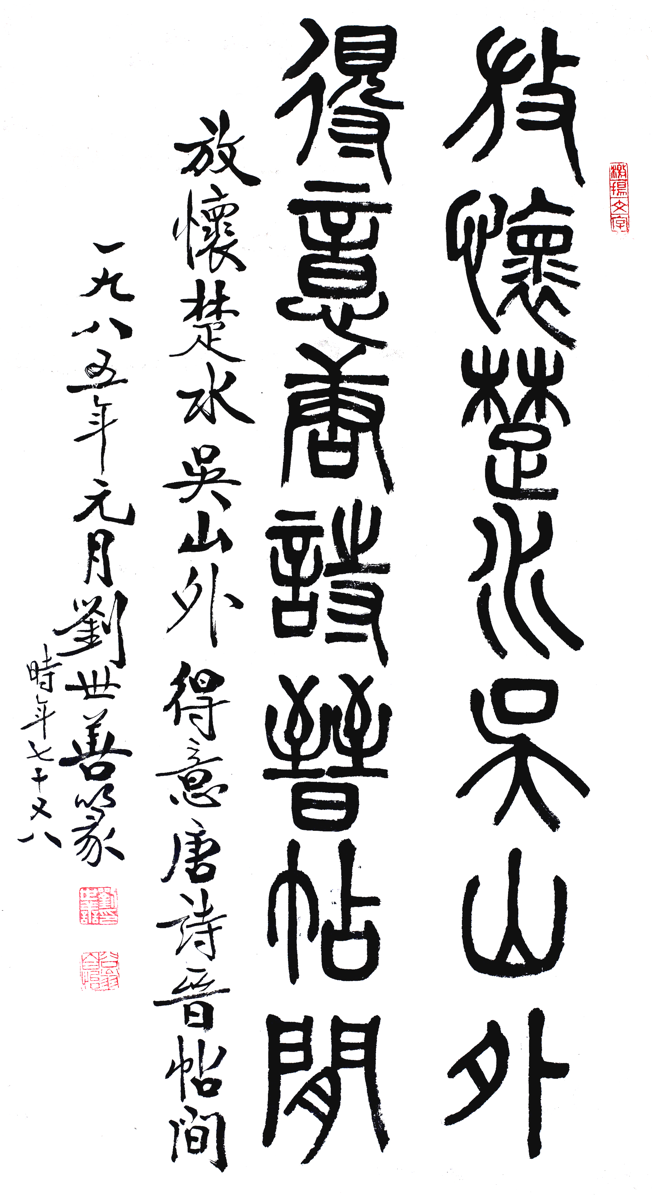 放懷楚水吳山外
得意唐詩晉帖間
放懷楚水吳山外 得意唐詩晉帖間
一九八五年元月劉世善篆
時年七十又八